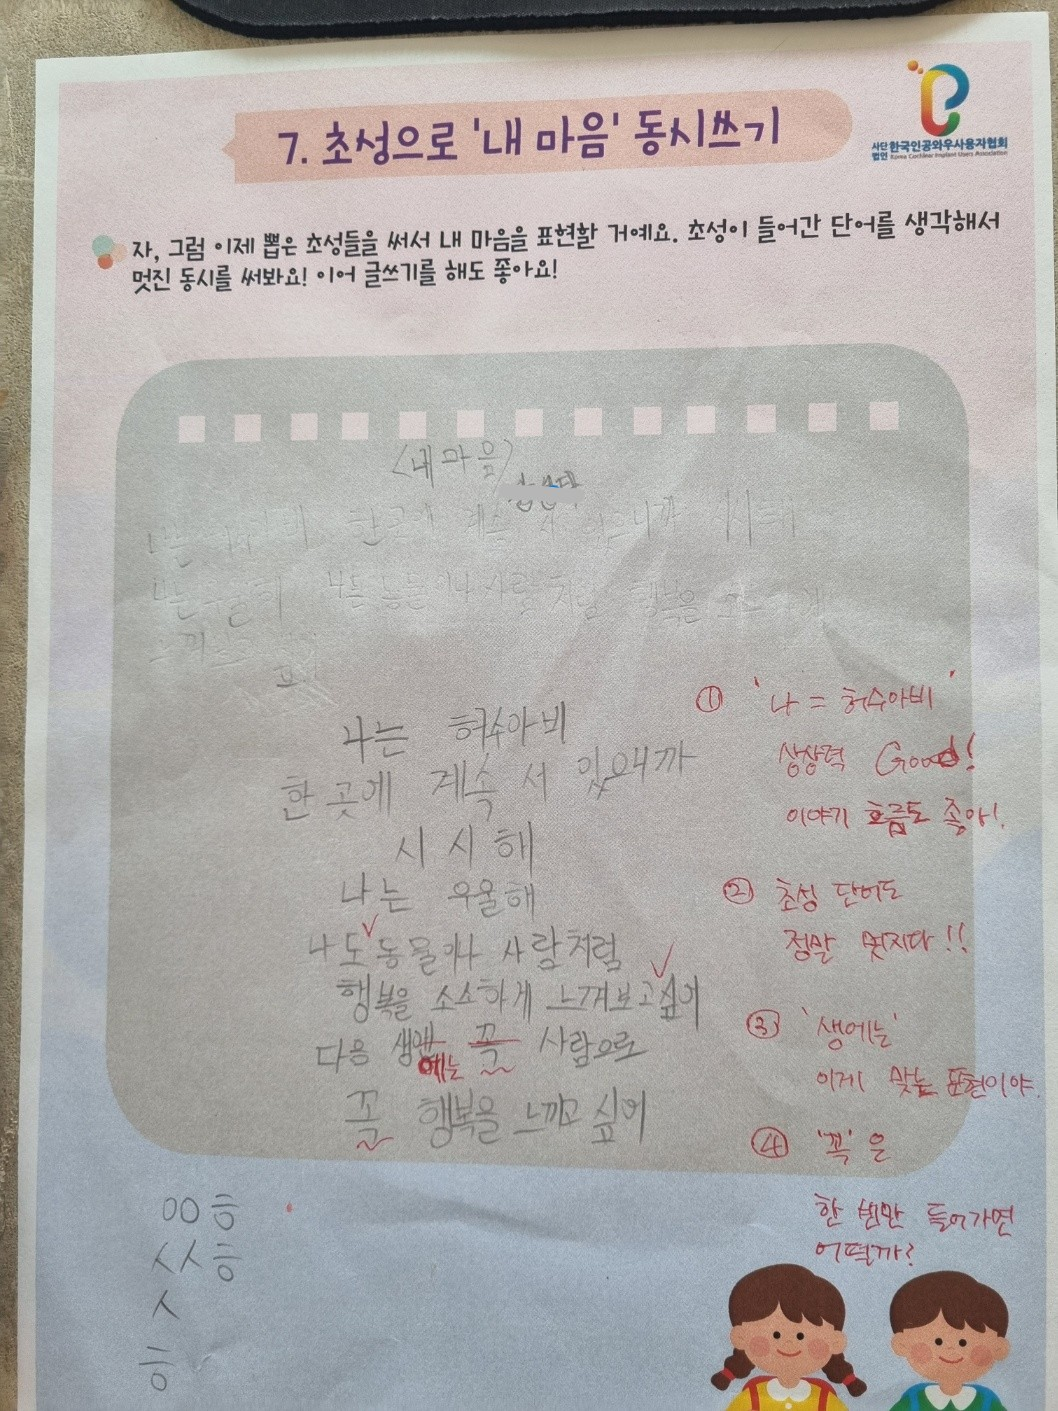 7. 초성으로 '내 마음' 동시쓰기
사단법인 한국인공와우사용자협회
Korea Cochlear Implant Users Association
자, 그럼 이제 뽑은 초성들을 써서 내 마음을 표현할 거예요. 초성이 들어간 단어를 생각해서
멋진 동시를 써봐요! 이어 글쓰기를 해도 좋아요!
<내 마음>
나는 허수아비
한 곳에 계속 서 있으니까
시 시 해
나는 우울해
나도 동물이나 사람처럼
행복을 소소하게 느껴보고싶어
다음 생엔 꼭 사람으로
에는
꼭 행복을 느끼고 싶어
① '나 = 허수아비'
상상력 Good!
이야기 흐름도 좋아!
② 초성 단어도
정말 멋지다!!
③ '생에는'
이게 맞는 표현이야.
④ '꼭'은
한 번만 들어가면
어떨까?
ㅇㅇㅎ
ㅅㅅㅎ
ㅅ
ㅎ